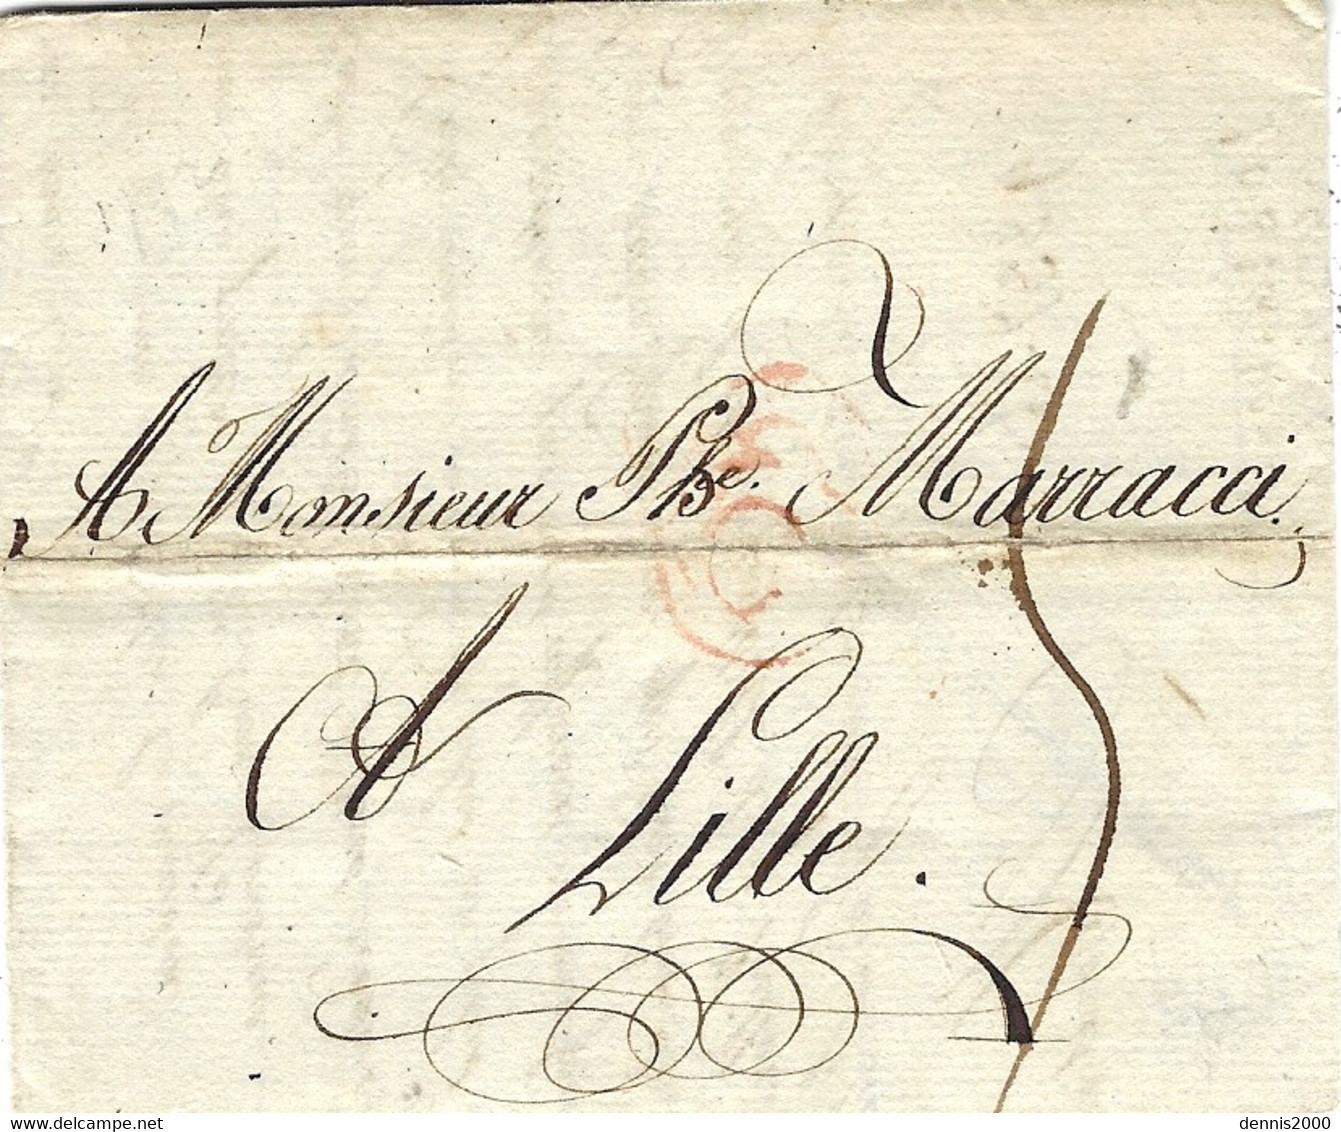 A Monsieur Phe. Marracci,
A
Lille.
delcampe.net
dennis2000